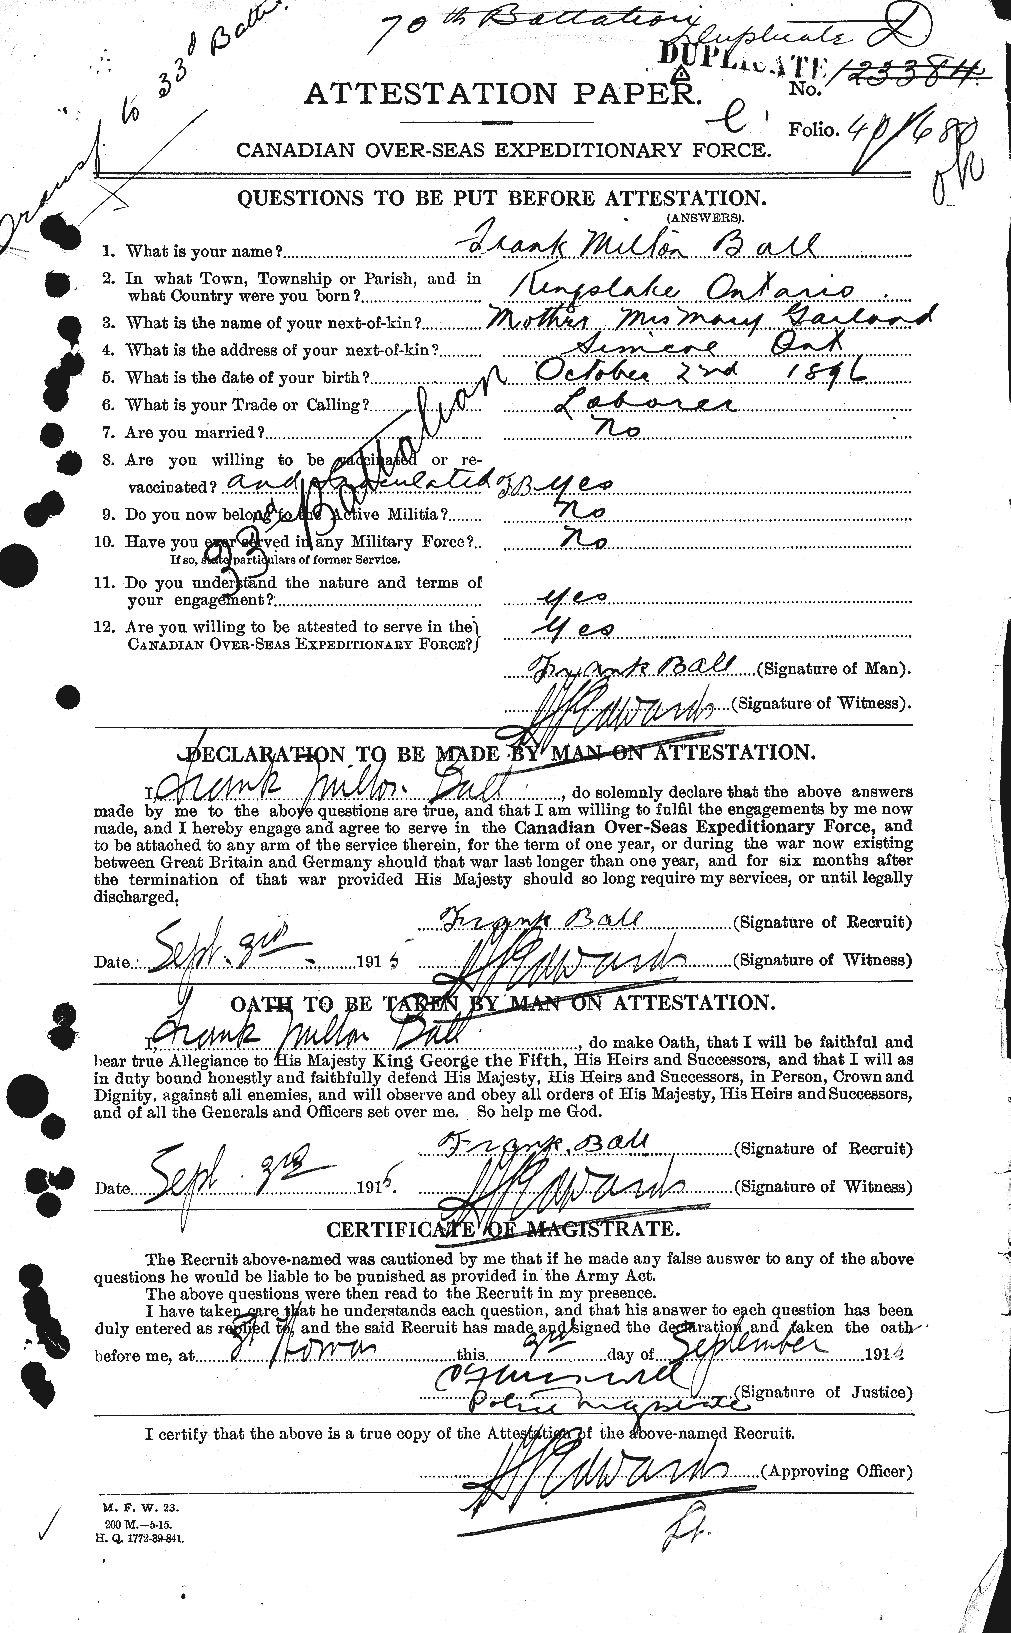 70th Battalion
Duplicate D
Transf to 33rd Battn.
DUPLICATE
ATTESTATION PAPER.
No. 123384
Folio. 40/680
OK
CANADIAN OVER-SEAS EXPEDITIONARY FORCE.
QUESTIONS TO BE PUT BEFORE ATTESTATION.
(ANSWERS).
1. What is your name? Frank Milton Ball
2. In what Town, Township or Parish, and in
what Country were you born? Kingslake Ontario
3. What is the name of your next-of-kin? Mother Mrs Mary Garland
4. What is the address of your next-of-kin? Simcoe Ont
5. What is the date of your birth? October 2nd 1896
6. What is your Trade or Calling? Laborer
7. Are you married? No
8. Are you willing to be vaccinated or re-
vaccinated? and inoculated FB yes
9. Do you now belong to the Active Militia? No
10. Have you ever served in any Military Force? No
If so, state particulars of former Service.
11. Do you understand the nature and terms of
your engagement? yes
12. Are you willing to be attested to serve in the
CANADIAN OVER-SEAS EXPEDITIONARY FORCE? yes
33rd Battalion
Frank Ball (Signature of Man).
Edwards (Signature of Witness).
DECLARATION TO BE MADE BY MAN ON ATTESTATION.
I, Frank Milton Ball, do solemnly declare that the above answers
made by me to the above questions are true, and that I am willing to fulfil the engagements by me now
made, and I hereby engage and agree to serve in the Canadian Over-Seas Expeditionary Force, and
to be attached to any arm of the service therein, for the term of one year, or during the war now existing
between Great Britain and Germany should that war last longer than one year, and for six months after
the termination of that war provided His Majesty should so long require my services, or until legally
discharged.
Frank Ball (Signature of Recruit)
Date Sept. 3rd 1915 Edwards (Signature of Witness)
OATH TO BE TAKEN BY MAN ON ATTESTATION.
I, Frank Milton Ball, do make Oath, that I will be faithful and
bear true Allegiance to His Majesty King George the Fifth, His Heirs and Successors, and that I will as
in duty bound honestly and faithfully defend His Majesty, His Heirs and Successors, in Person, Crown and
Dignity, against all enemies, and will observe and obey all orders of His Majesty, His Heirs and Successors,
and of all the Generals and Officers set over me. So help me God.
Frank Ball (Signature of Recruit)
Date Sept 3rd 1915. Edwards (Signature of Witness)
CERTIFICATE OF MAGISTRATE.
The Recruit above-named was cautioned by me that if he made any false answer to any of the above
questions he would be liable to be punished as provided in the Army Act.
The above questions were then read to the Recruit in my presence.
I have taken care that he understands each question, and that his answer to each question has been
duly entered as replied to, and the said Recruit has made and signed the declaration and taken the oath
before me, at St Thomas this 3rd day of September 191
(Signature of Justice)
Police Magistrate
I certify that the above is a true copy of the Attestation of the above-named Recruit.
Edwards (Approving Officer)
Lt.
M. F. W. 23.
200 M.—5-15.
H. Q. 1772-39-841.